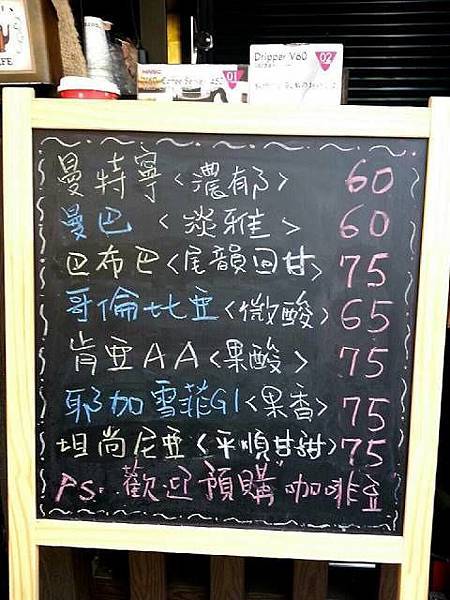 CAFE
HARIO
Coffee Server
01
Dripper V60
02
曼特寧<濃郁> 60
曼巴 <淡雅> 60
巴布巴<尾韻回甘> 75
哥倫比亞<微酸> 65
肯亞AA<果酸> 75
耶加雪菲G1<果香> 75
坦尚尼亞<平順甘甜> 75
PS. 歡迎預購咖啡豆